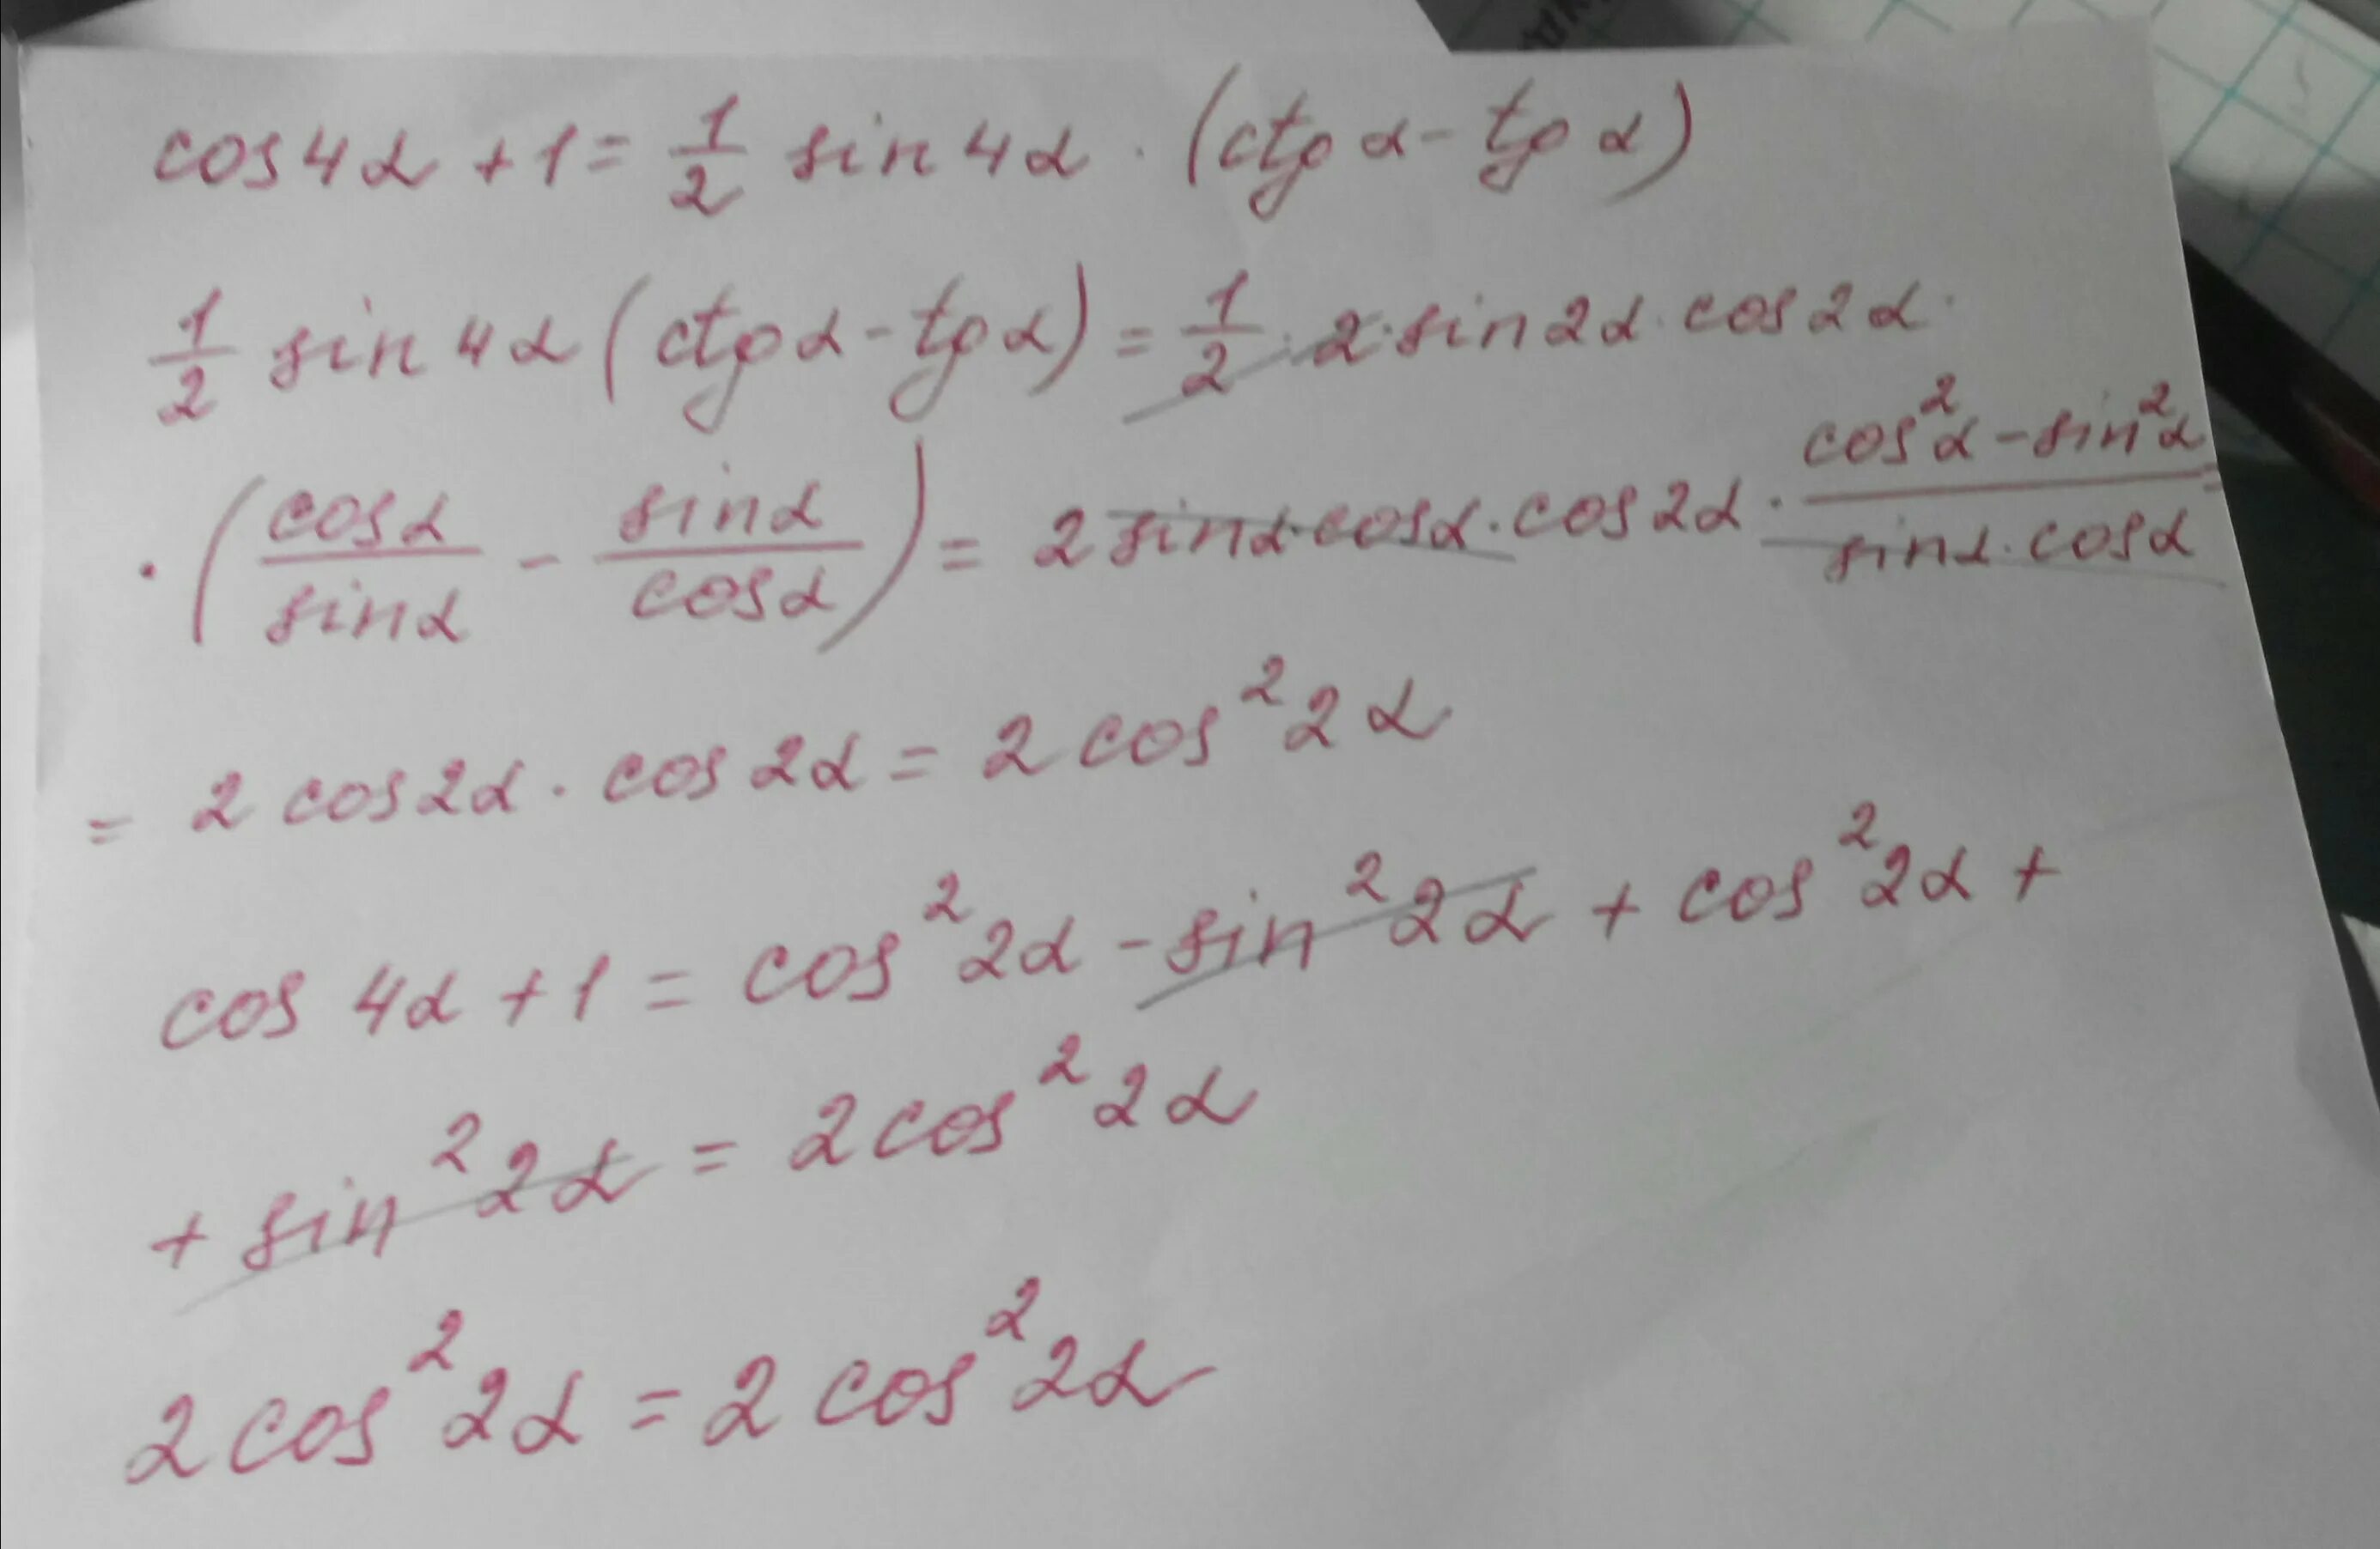 cos4α + 1 = 1/2 sin4α · (ctgα - tgα)
1/2 sin4α (ctgα - tgα) = 1/2 · 2 · sin2α · cos2α ·
· (cosα/sinα - sinα/cosα) = 2 sinα · cosα · cos2α · (cos²α - sin²α)/(sinα · cosα) =
= 2 cos2α · cos2α = 2 cos²2α
cos 4α + 1 = cos²2α - sin²2α + cos²2α +
+ sin²2α = 2 cos²2α
2 cos²2α = 2 cos²2α